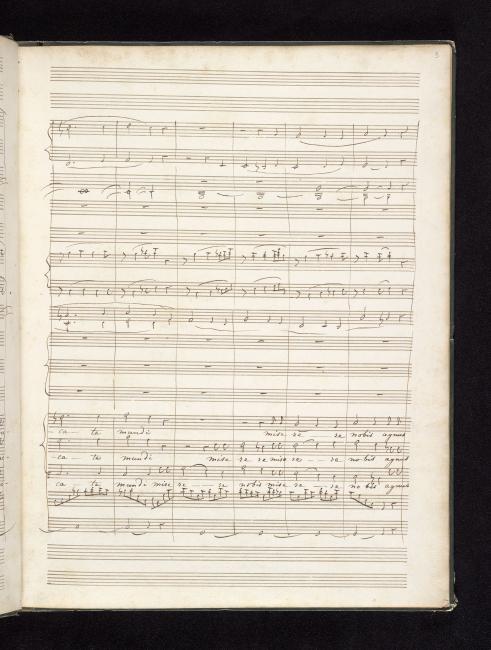 3
ca - ta mundi mise re - re nobis agnus
ca - ta mundi mise re re mise re - re nobis agnus
ca - ta mundi mise re - re nobis mise re - re nobis agnus